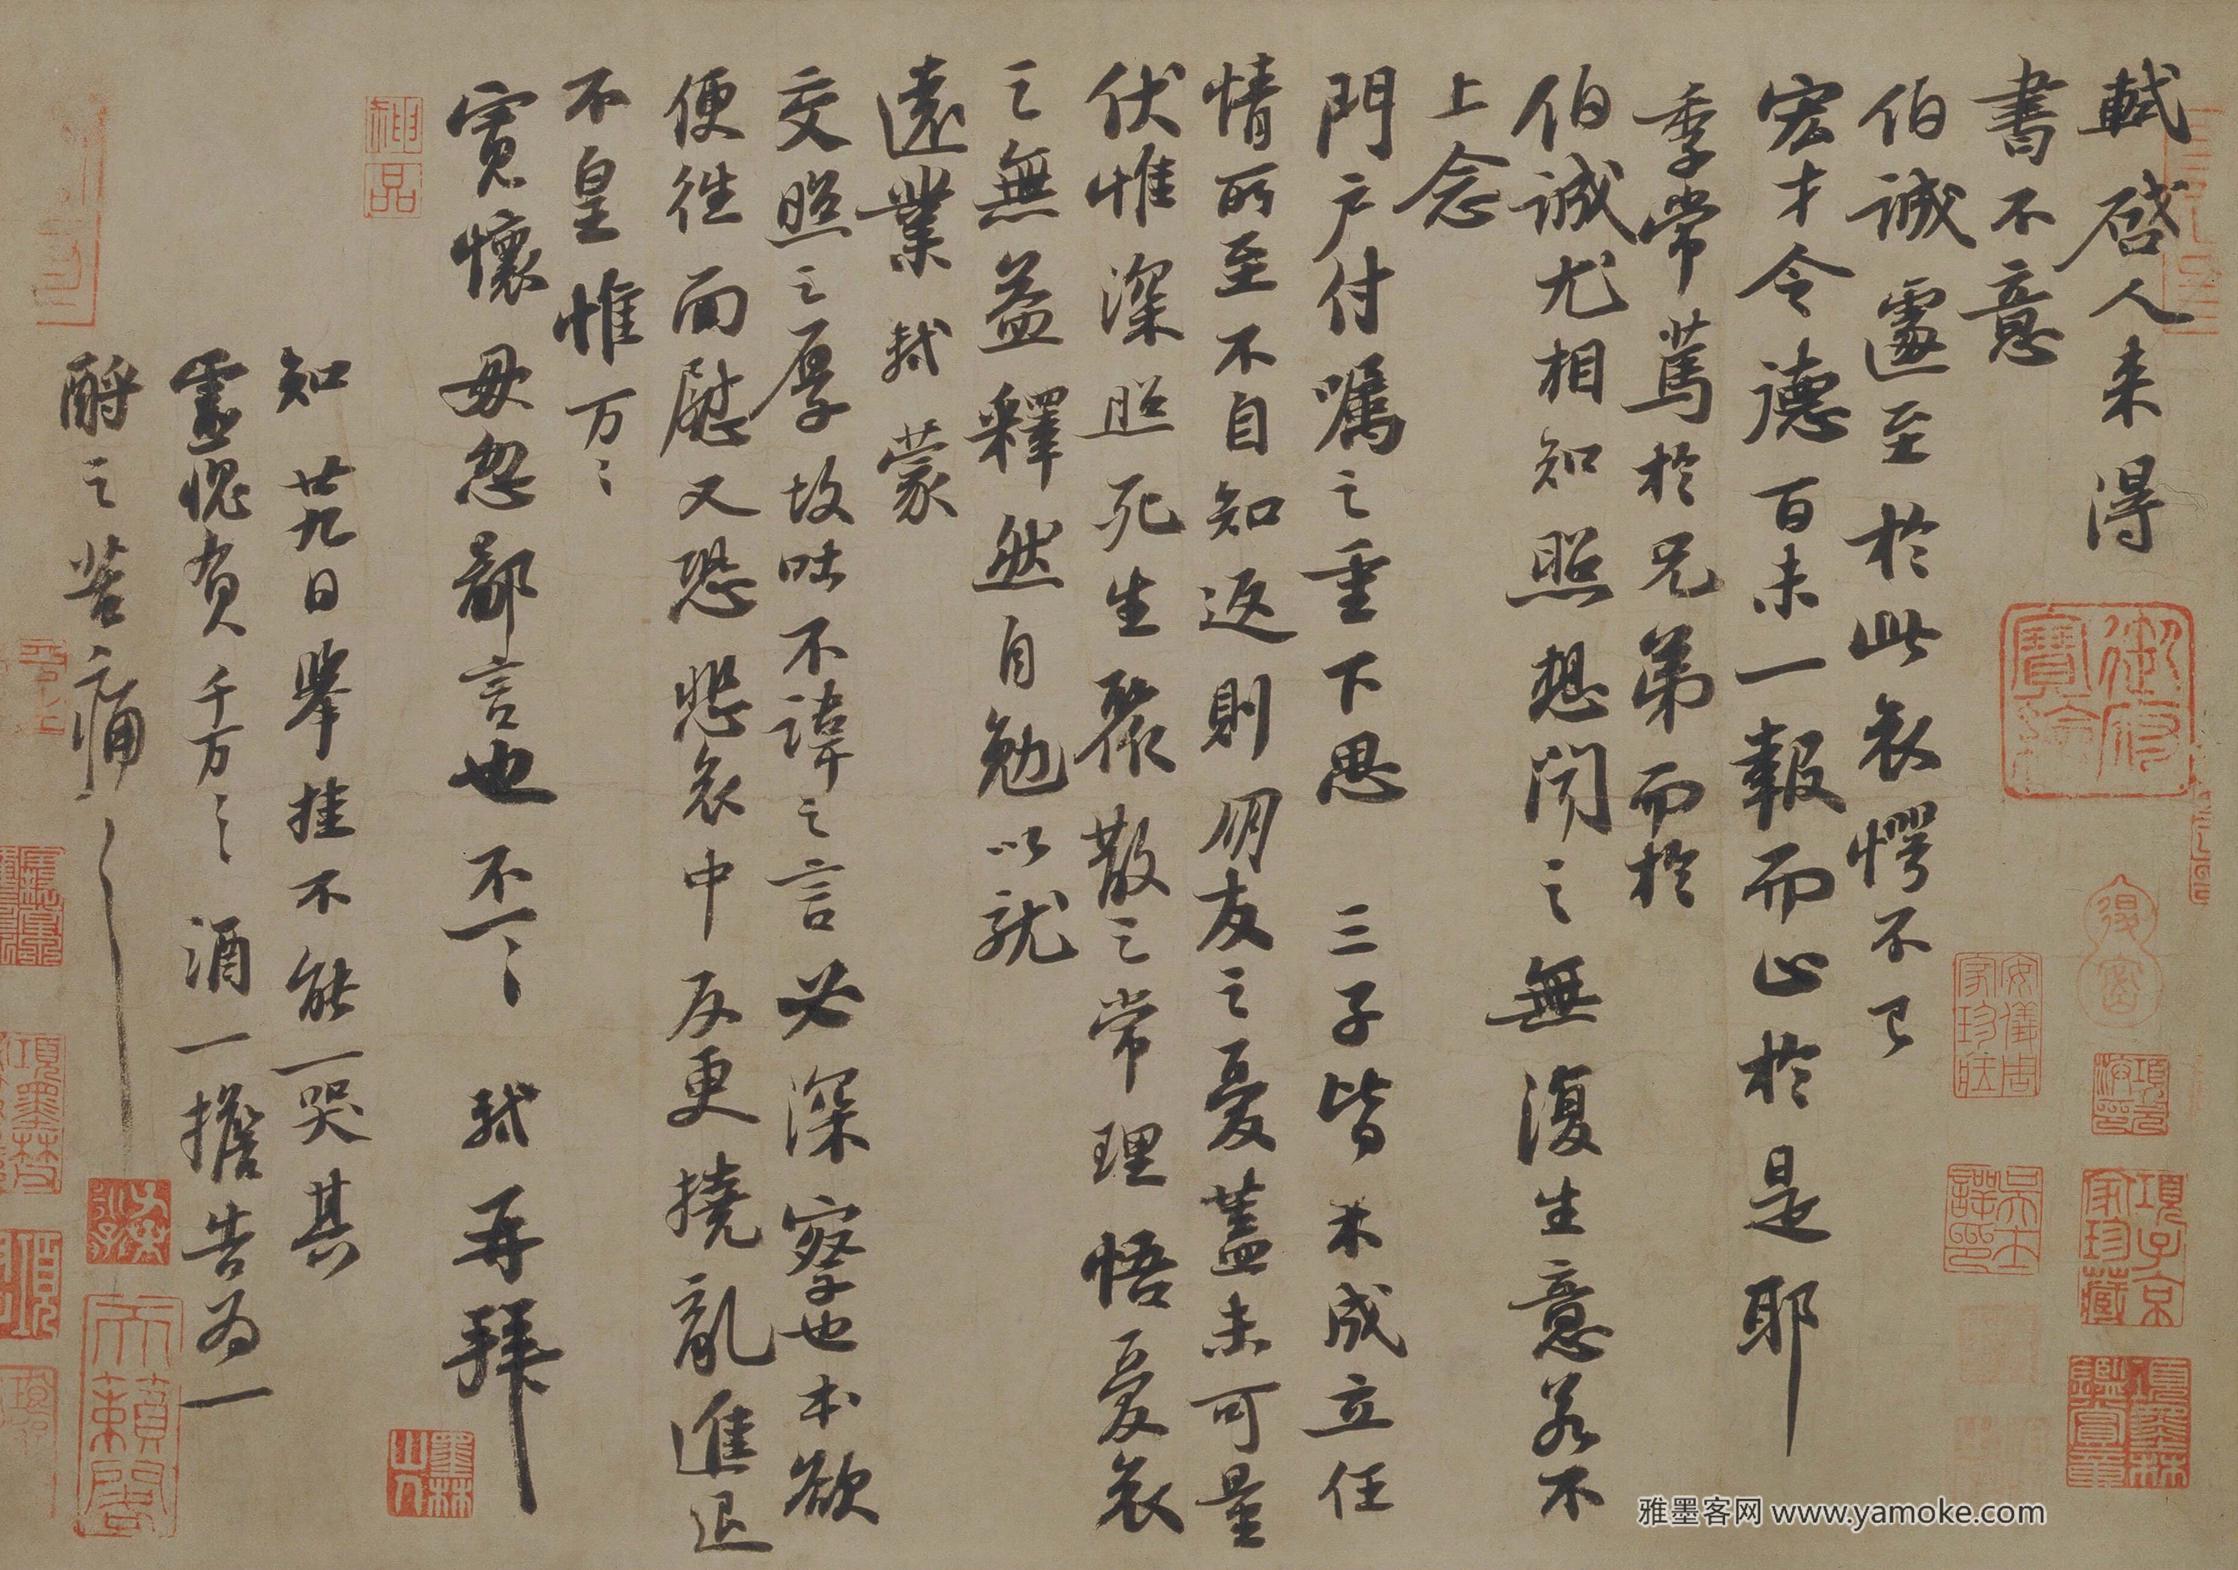 軾啓人來得
書不意
伯誠遽至於此哀愕不已
宏才令德百未一報而止於是耶
季常篤於兄弟而於
伯誠尤相知照想聞之無復生意若不
上念
門戶付囑之重下思三子皆未成立任
情所至不自知返則朋友之憂蓋未可量
伏惟深照死生聚散之常理悟憂哀
之無益釋然自勉以就
遠業軾蒙
交照之厚故吐不諱之言必深察也本欲
便往面慰又恐悲哀中反更撓亂進退
不皇惟万〻
寬懷毋忽鄙言也不一〻軾再拜
知廿九日舉挂不能一哭其
靈愧負千万〻酒一擔告為一
酹之苦痛〻
御府寶繪
神品
項子京家珍藏
項墨林鑑賞章
安儀周家珍藏
墨林山人
天籟閣
雅墨客网 www.yamoke.com